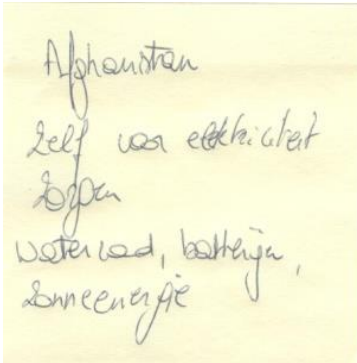 Afghanistan
Zelf voor elektriciteit
zorgen
waterrad, batterijen,
zonneenergie